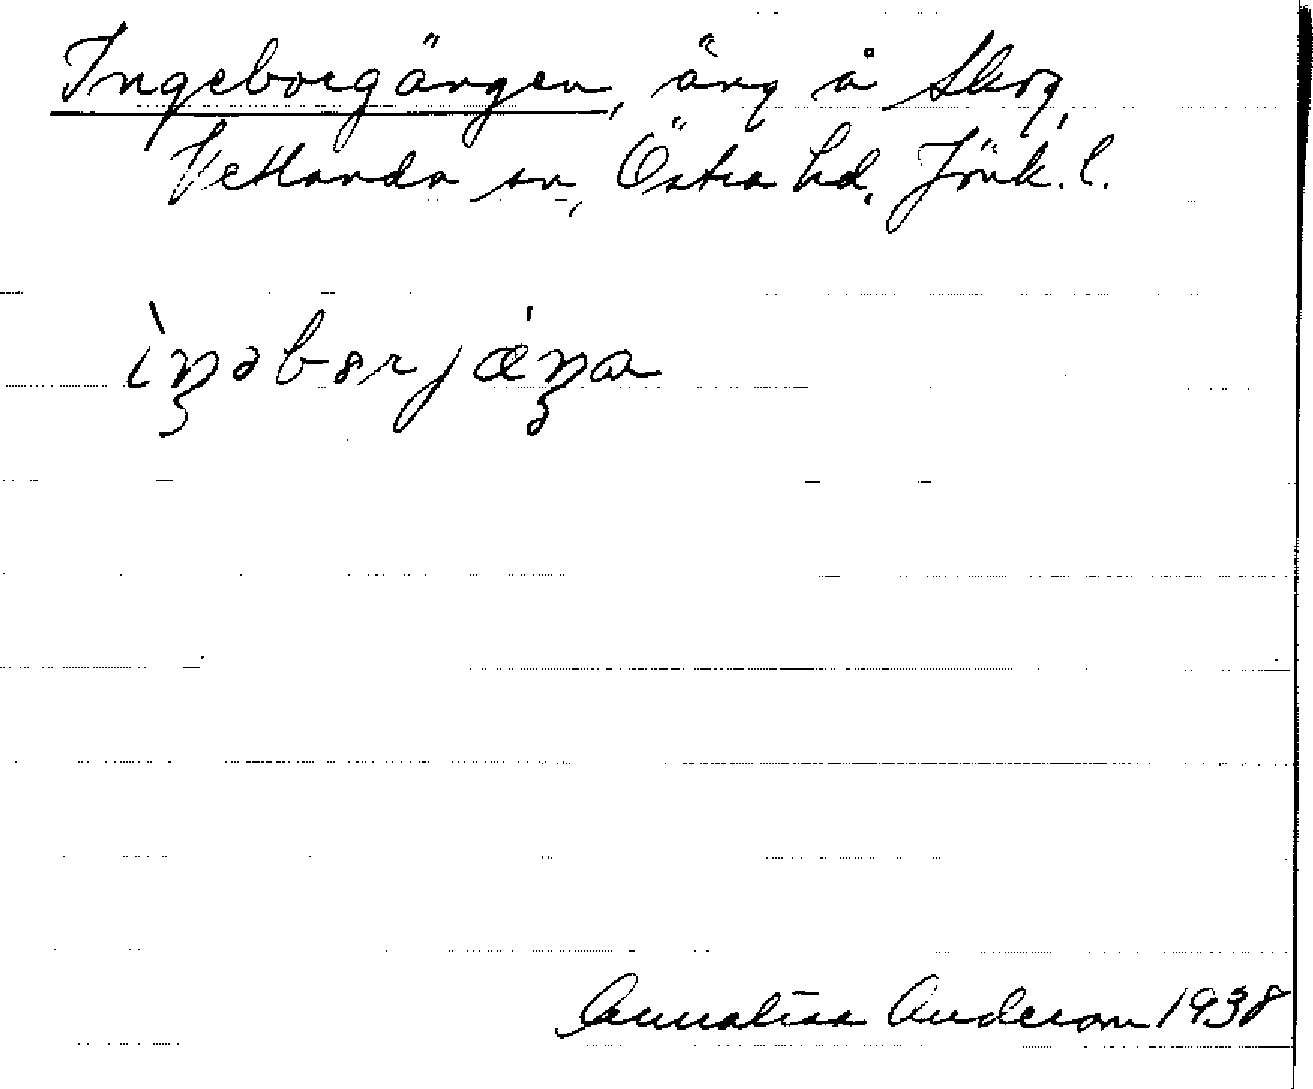 Ingeborgängen, äng å Skog,
Vetlanda sn, Östra hd, Jönk. l.
ìŋəbɵrjǽŋa
Annalisa Anderson 1938